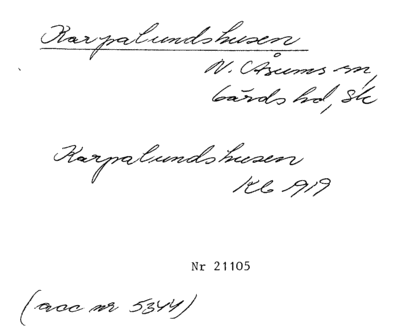 Karpalundshusen
N. Åsums sn,
Gärds hd, Sk
Karpalundshusen
Kb 1919
Nr 21105
(acc nr 5344)